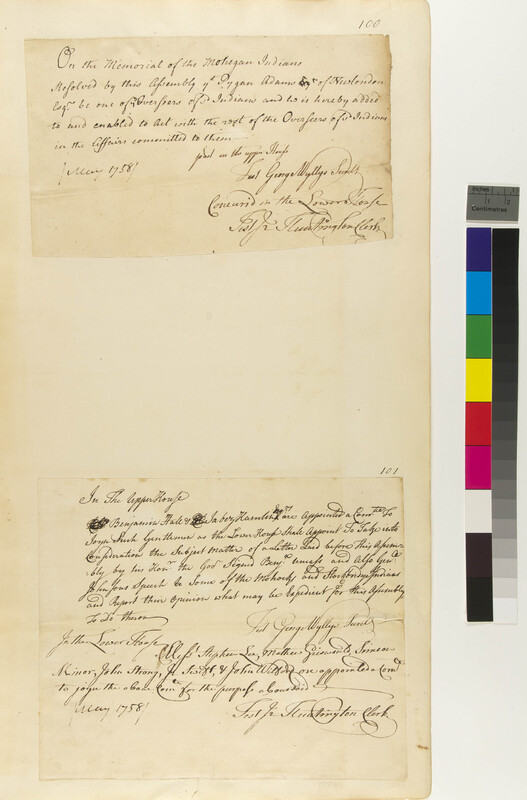 100
On the Memorial of the Mohegan Indians
Resolved by this Assembly yt Pygan Adams of New London
Esqr be one of ye Overseers of sd Indians and he is hereby added
to and enabled to Act with the rest of the Overseers of sd Indians
in the Affairs committed to them
past in the upper House
[May 1758]
Test George Wyllys Secrt
Concurd in the Lower House
Test Jr Huntington Clerk
101
In The Upper House
Benjamin Hall & Jabez Hamlin Esqrs are Appointed a Comtee To
Joyn Such Gentlemen as the Lower House Shall Appoint To Take into
Consideration the Subject matter of a Letter Laid before this Assem-
bly by his Honr the Govr Signd Benj and Also
Johnsons Speech to Some of the Mohock and Indians
and Report their Opinion what may be Expedient for this Assembly
To Do theron
Test George Wyllys Secrt
In the Lower House
Messrs Stephen Lee, Mathew Simeon
Minor, John Strong, & John are appointed a Comtee
to joyn the above Comtee for the purpose aboresaid
[May 1758]
Test Jr Huntington Clerk
Inches
1
2
Centimetres